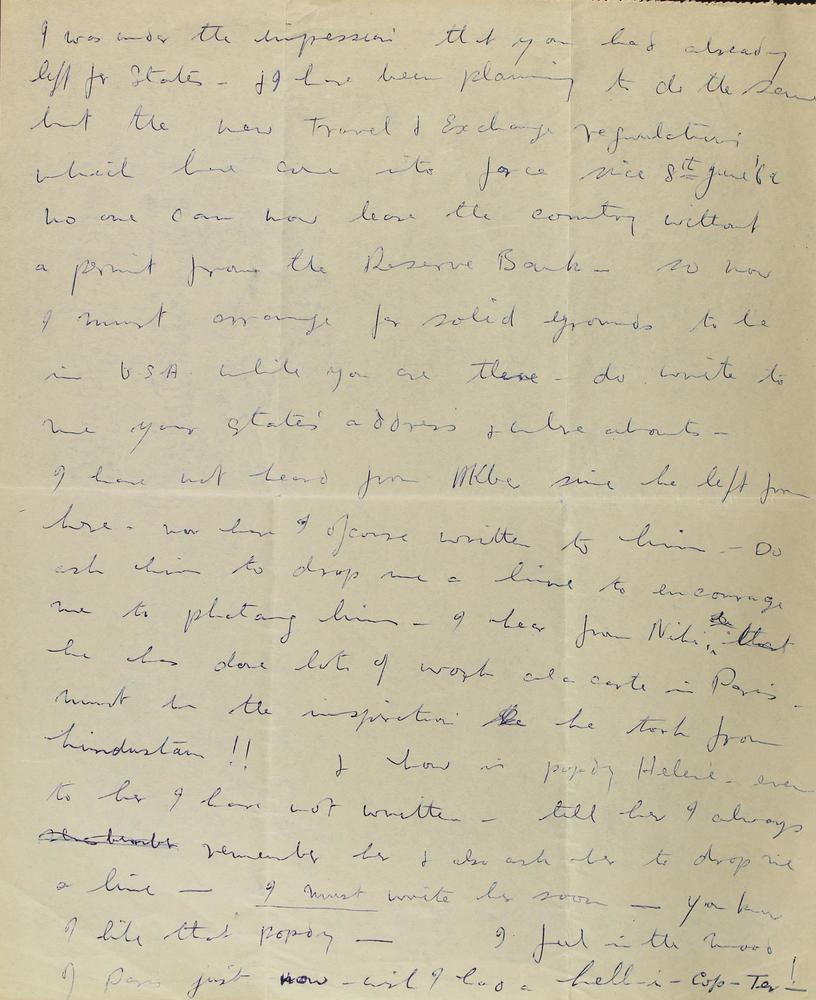 I was under the impression that you had already
left for States - I have been planning to do the same
but the new Travel & Exchange regulations
which have come into force since 8th June '62
no one can now leave the country without
a permit from the Reserve Bank - so now
I must arrange for solid grounds to be
in U.S.A. while you are there - do write to
me your States' address & where abouts -
I have not heard from since he left from
here - nor have I ofcorse written to him - Do
ask him to drop me a line to encourage
me to him - I hear from that
he has done lots of work ala carte in Paris -
must be the inspiration he took from
hindustan !! & how is Helene - even
to her I have not written - tell her I always
remember her & also ask her to drop me
a line — I must write her soon — you know
I like that — I feel in the mood
of Paris just now - wish I had a hell-i-Cop-Ter!